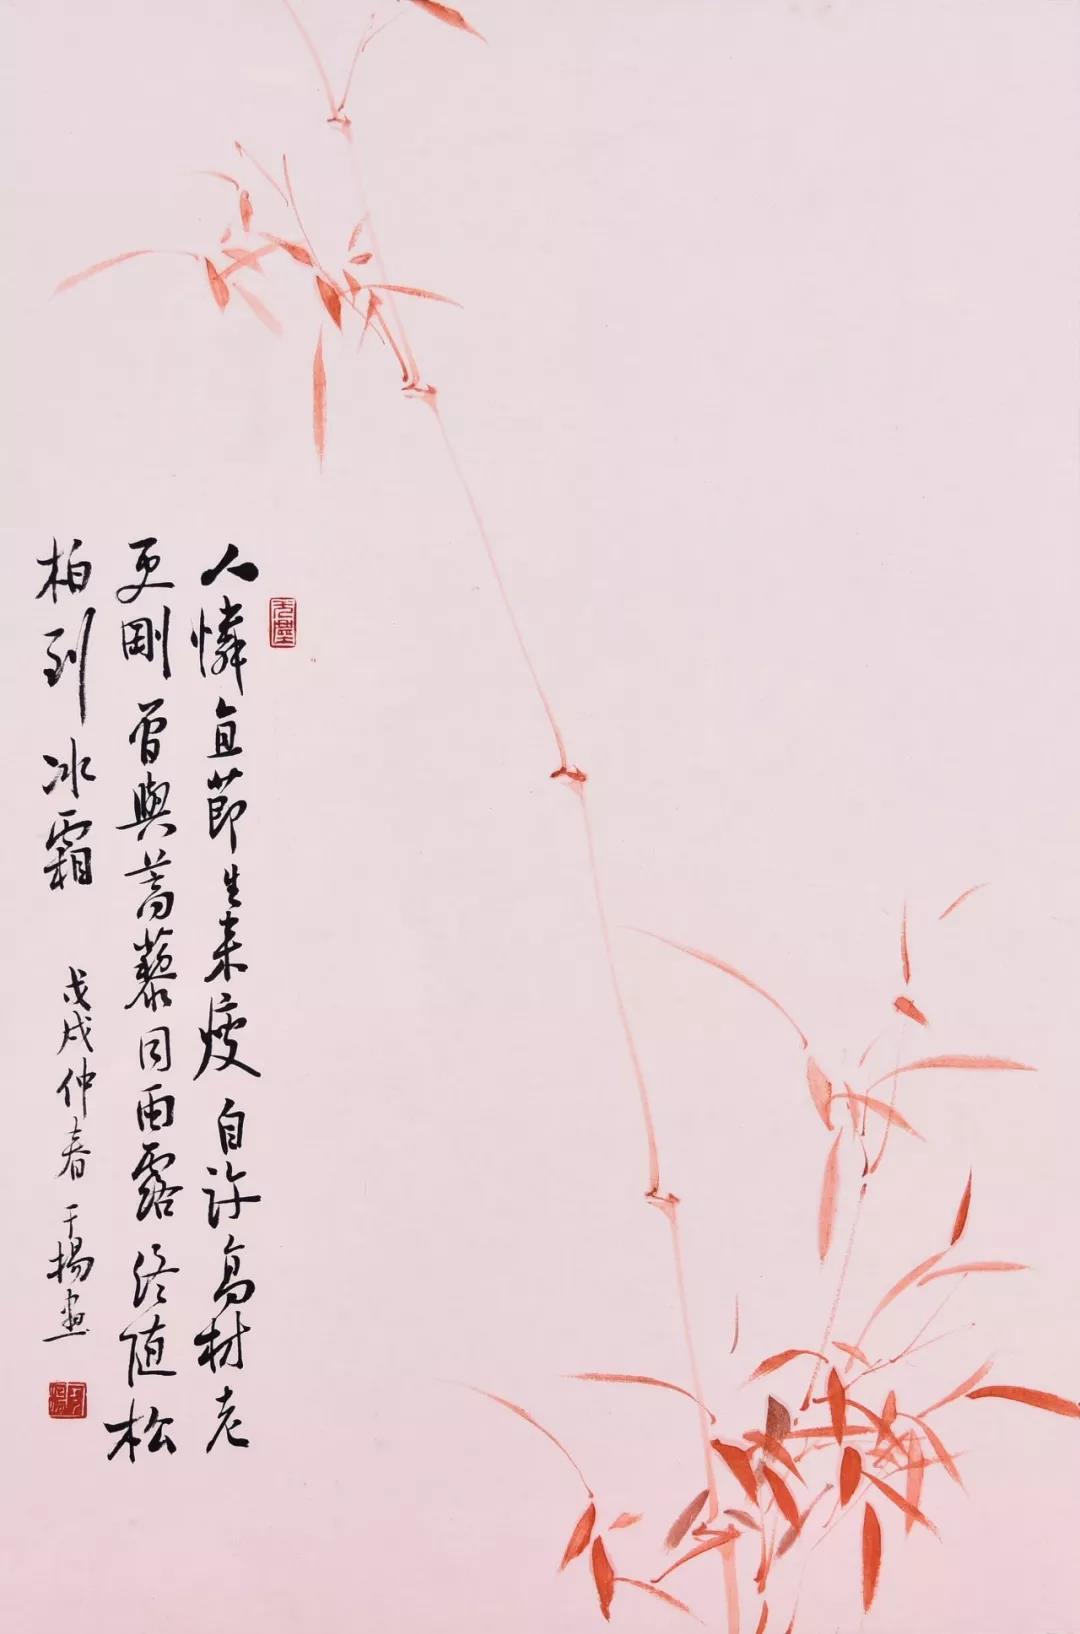 人憐直節生来瘦自許高材老
更剛曾與蒿藜同雨露終随松
柏到冰霜
戊戌仲春于揚畫